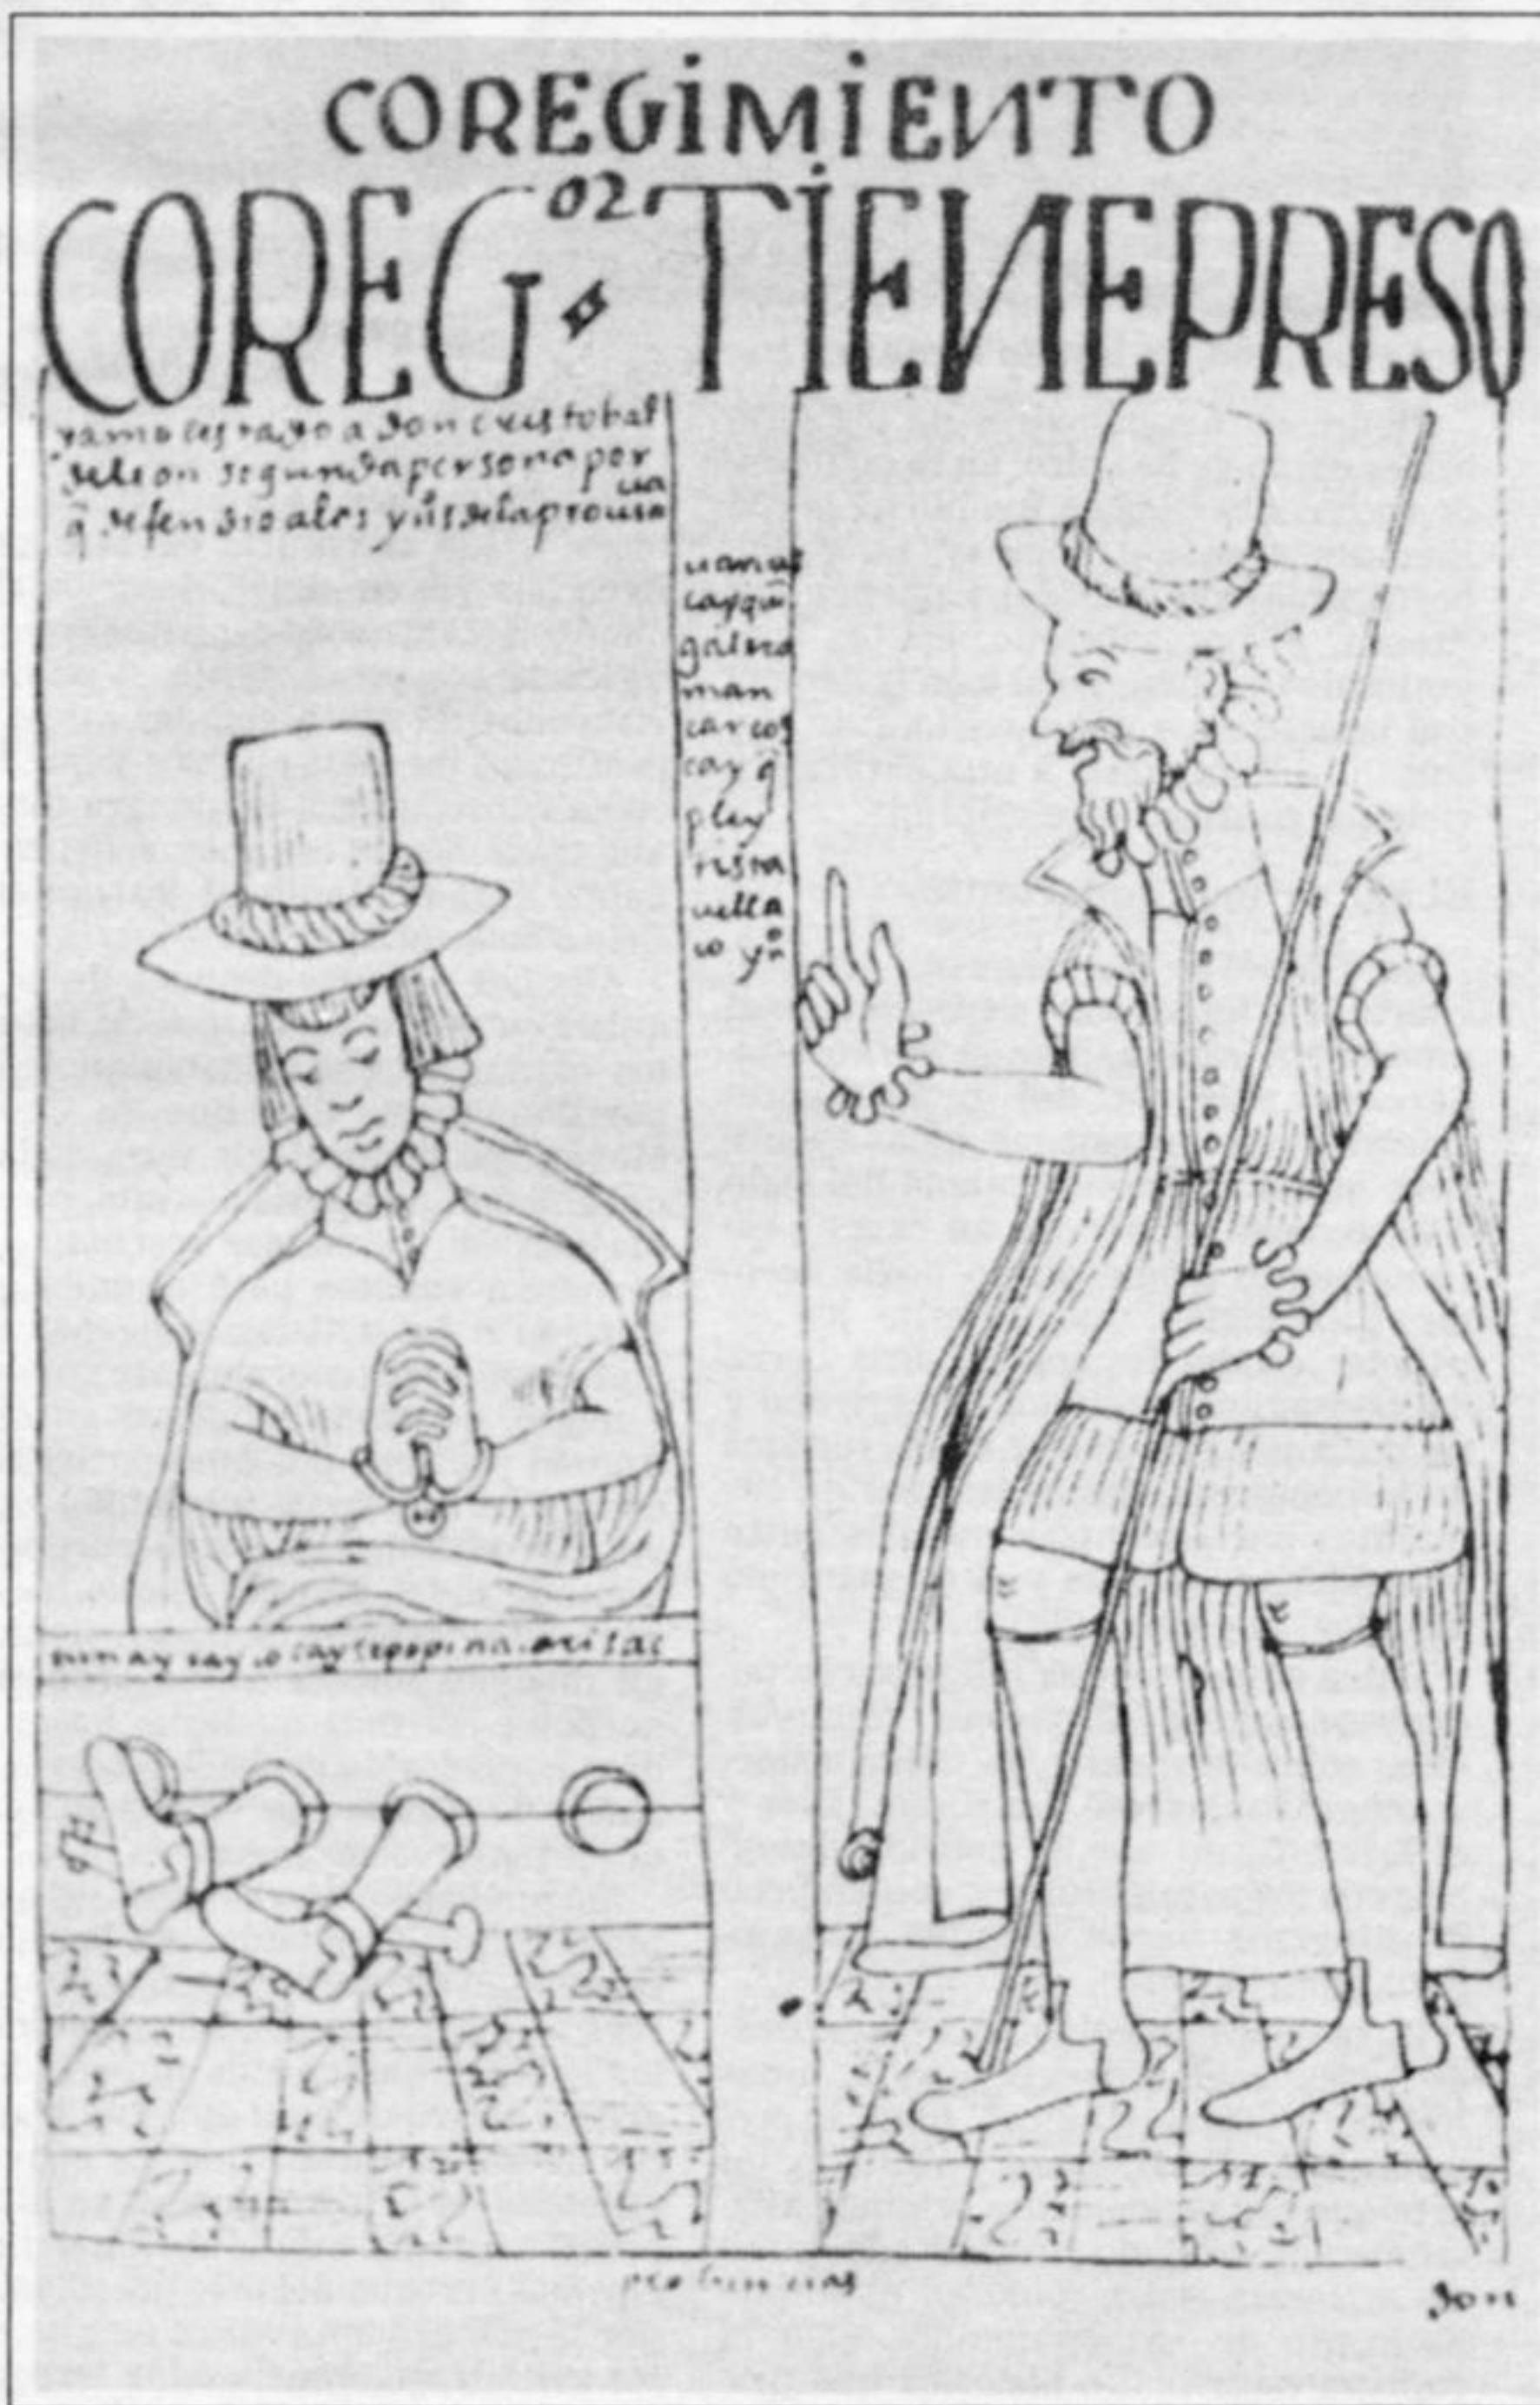 COREGIMIENTO
COREG.or TIENE PRESO
y amolestado a don cristobal
de leon segunda persona por
q̃ defendio a los yns de la prouin
uarcus
cayqui
galera
man
carcos
cay q̃
pley
tista
uella
co yo
runay rayco cay sepopi nacarisac
probincias
don